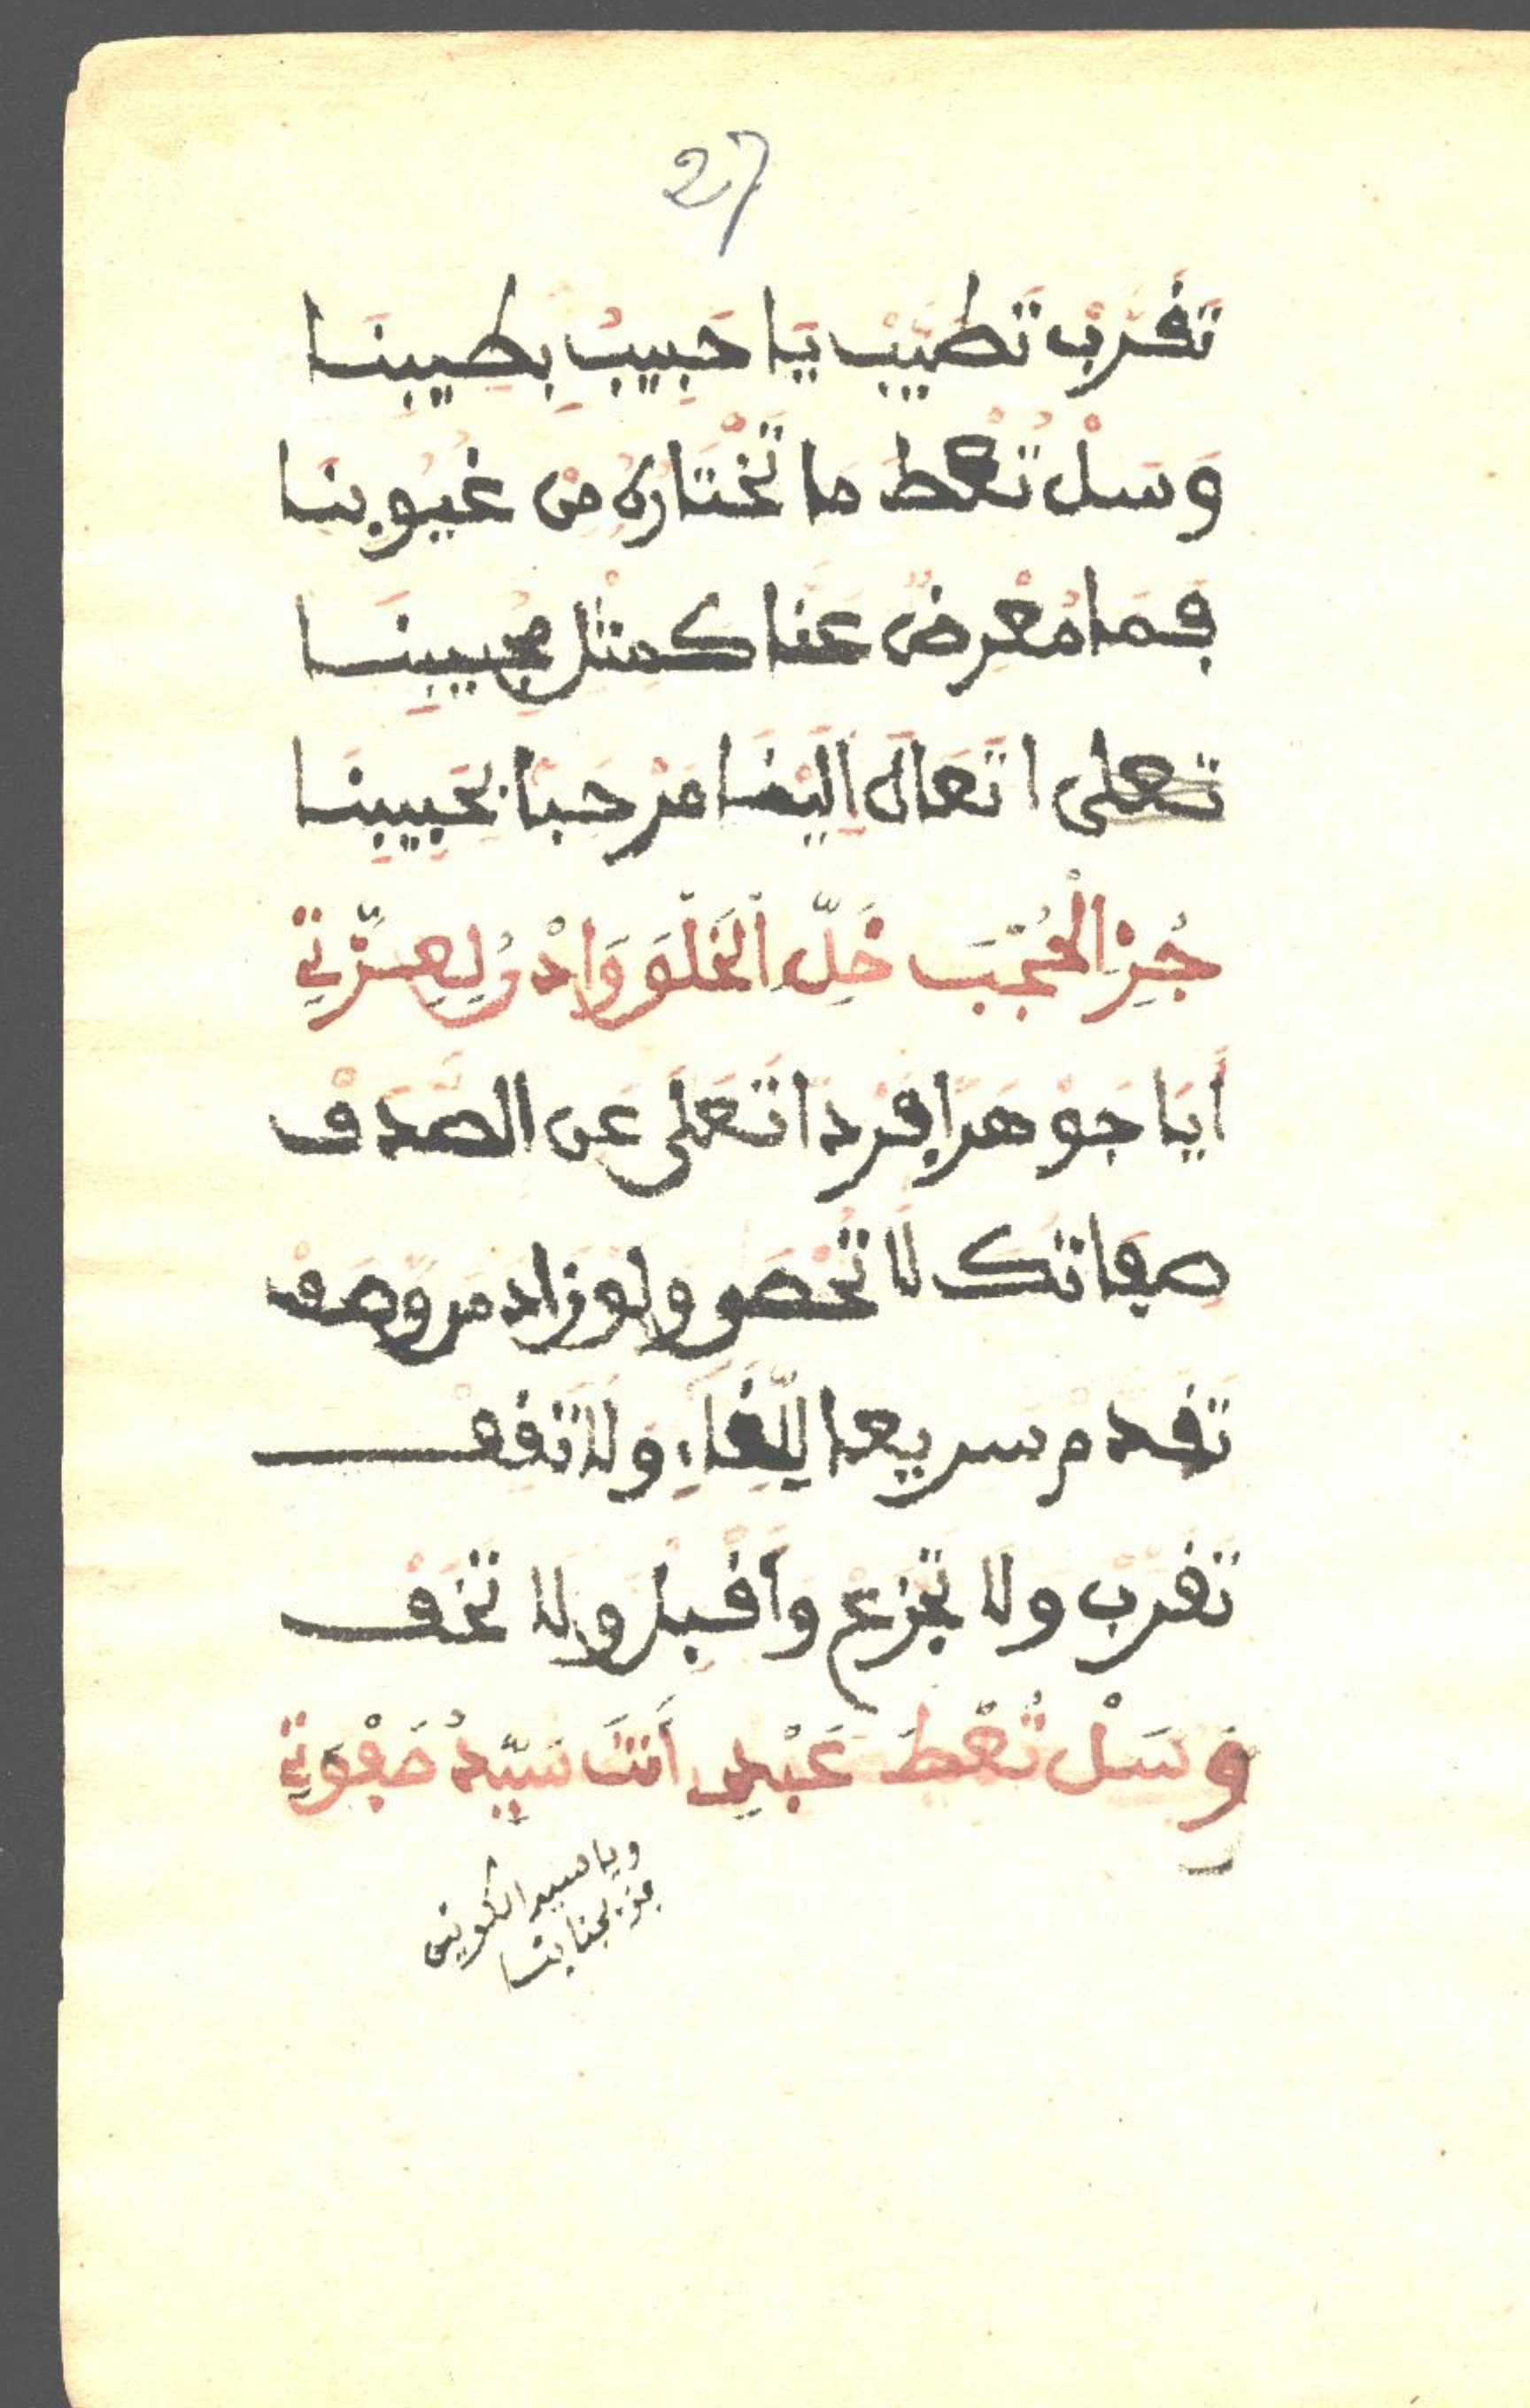 27
تَقَرَّبْ تَطَيَّبْ يَا حَبِيبُ بِطِيبِنَا
وَسَلْ تُعْطَ مَا تَخْتَارُهُ مِنْ غُيُوبِنَا
فَمَا مُعْرِضٌ عَنَّا كَمِثْلِ مُجِيبِنَا
تعلى ا تَعَالَ إِلَيْنَا مَرْحَبًا بِحَبِيبِنَا
جُزِ الْحُجْبَ خَلِّ الْخَلْقَ وَادْنُ لِعِزَّتِي
أَيَا جَوْهَرًا فَرْدًا تَعَلَى عَنِ الصَّدَفْ
صِفَاتُكَ لَا تُحْصَى وَلَوْ زَادَ مَن وَصَفْ
تَقَدَّمْ سَرِيعًا لِلِّقَاءِ وَلَا تَقِفْ
تَقَرَّبْ وَلَا تَجْزَعْ وَأَقْبِلْ وَلَا تَخَفْ
وَسَلْ تُعْطَ عَبْدِي أَنْتَ سَيِّدُ صَفْوَتِي
ويا سيد الكونين
فز بجنابنا